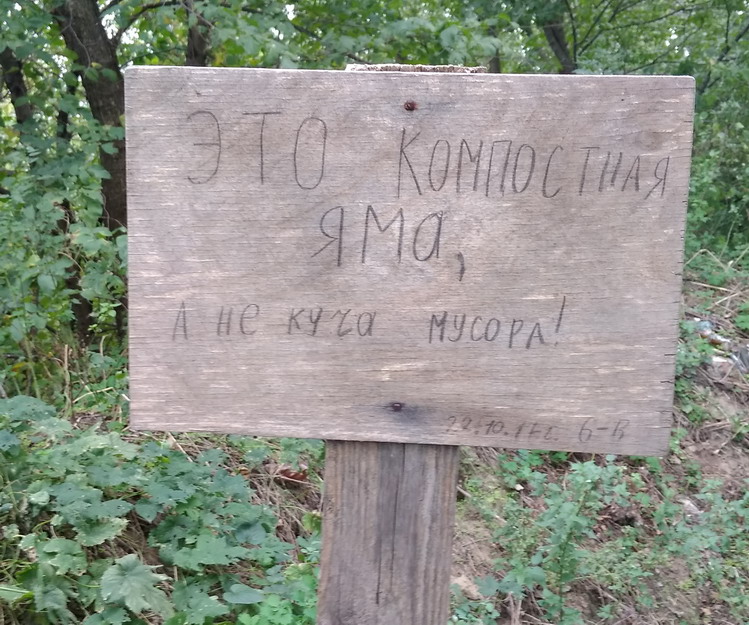 ЭТО КОМПОСТНАЯ
ЯМА,
А НЕ КУЧА МУСОРА!
6-В